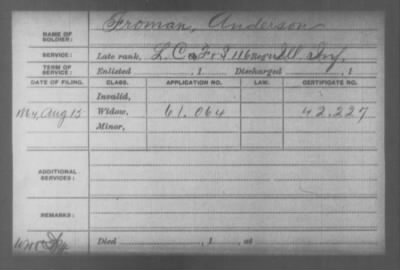 NAME OF SOLDIER: Froman, Anderson
SERVICE: Late rank, Co. F & S 116 Reg't Ill. Inf.
TERM OF SERVICE: Enlisted , 1 Discharged , 1
DATE OF FILING. CLASS. APPLICATION NO. LAW. CERTIFICATE NO.
Invalid,
1864, Aug 15 Widow, 61.064 42.227
Minor,
ADDITIONAL SERVICES:
REMARKS:
Died , 1 , at